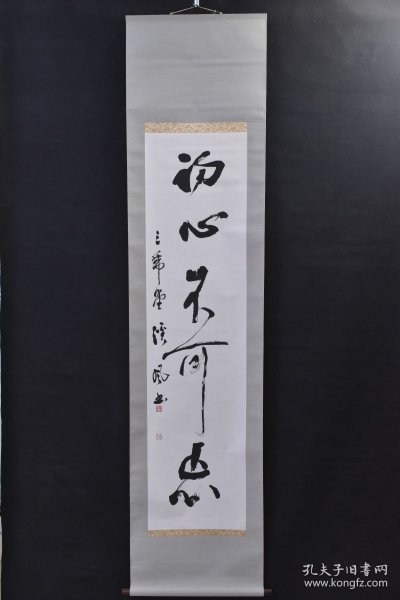 初心不可忘
溪風书
孔夫子旧书网
www.kongfz.com